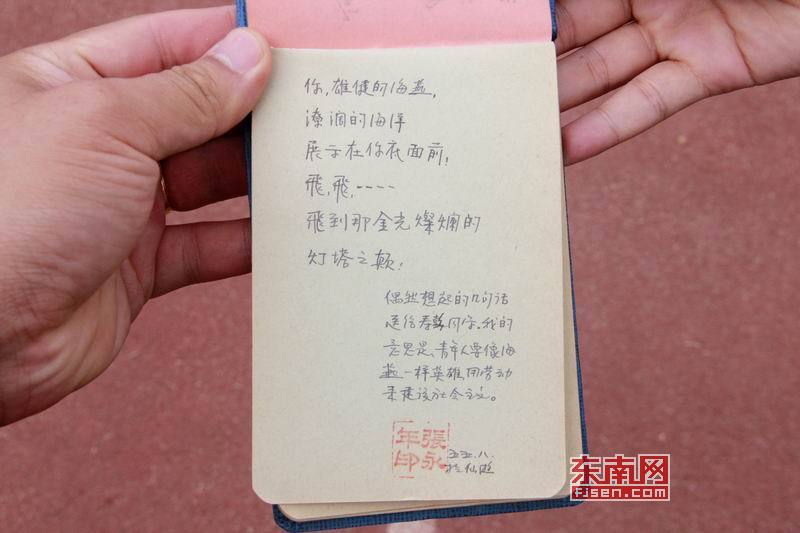 你，雄健的海燕，
潦阔的海洋
展示在你底面前，
飛，飛，----
飛到那金光燦爛的
灯塔之颠！
偶然想起的几句话
送给春 同学。我的
意思是、青年人要像海
燕一样英雄用劳动
来建设社会主义。
張永
年印
五五.八.
於仙遊
东南网
Fjsen.com